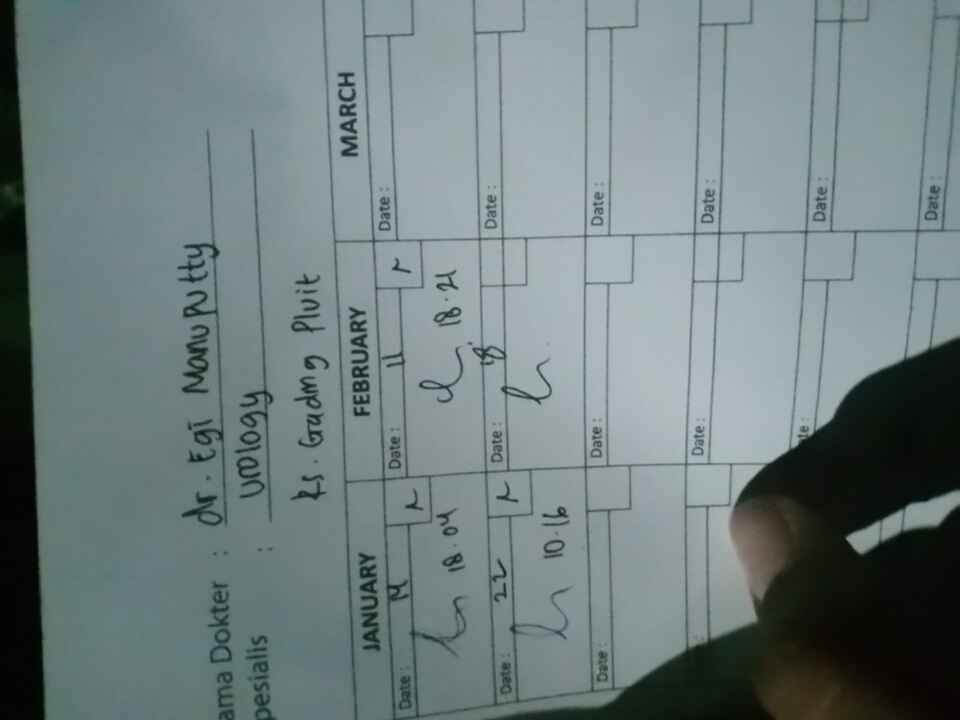 ama Dokter : dr. Egi Manuputty
pesialis : Urology
Rs. Gading Pluit
JANUARY FEBRUARY MARCH
Date : Date : 11 Date :
18.04 18.21
Date : 22 Date : 18 Date :
10.16
Date : Date : Date :
Date : Date :
te : Date :
Date :